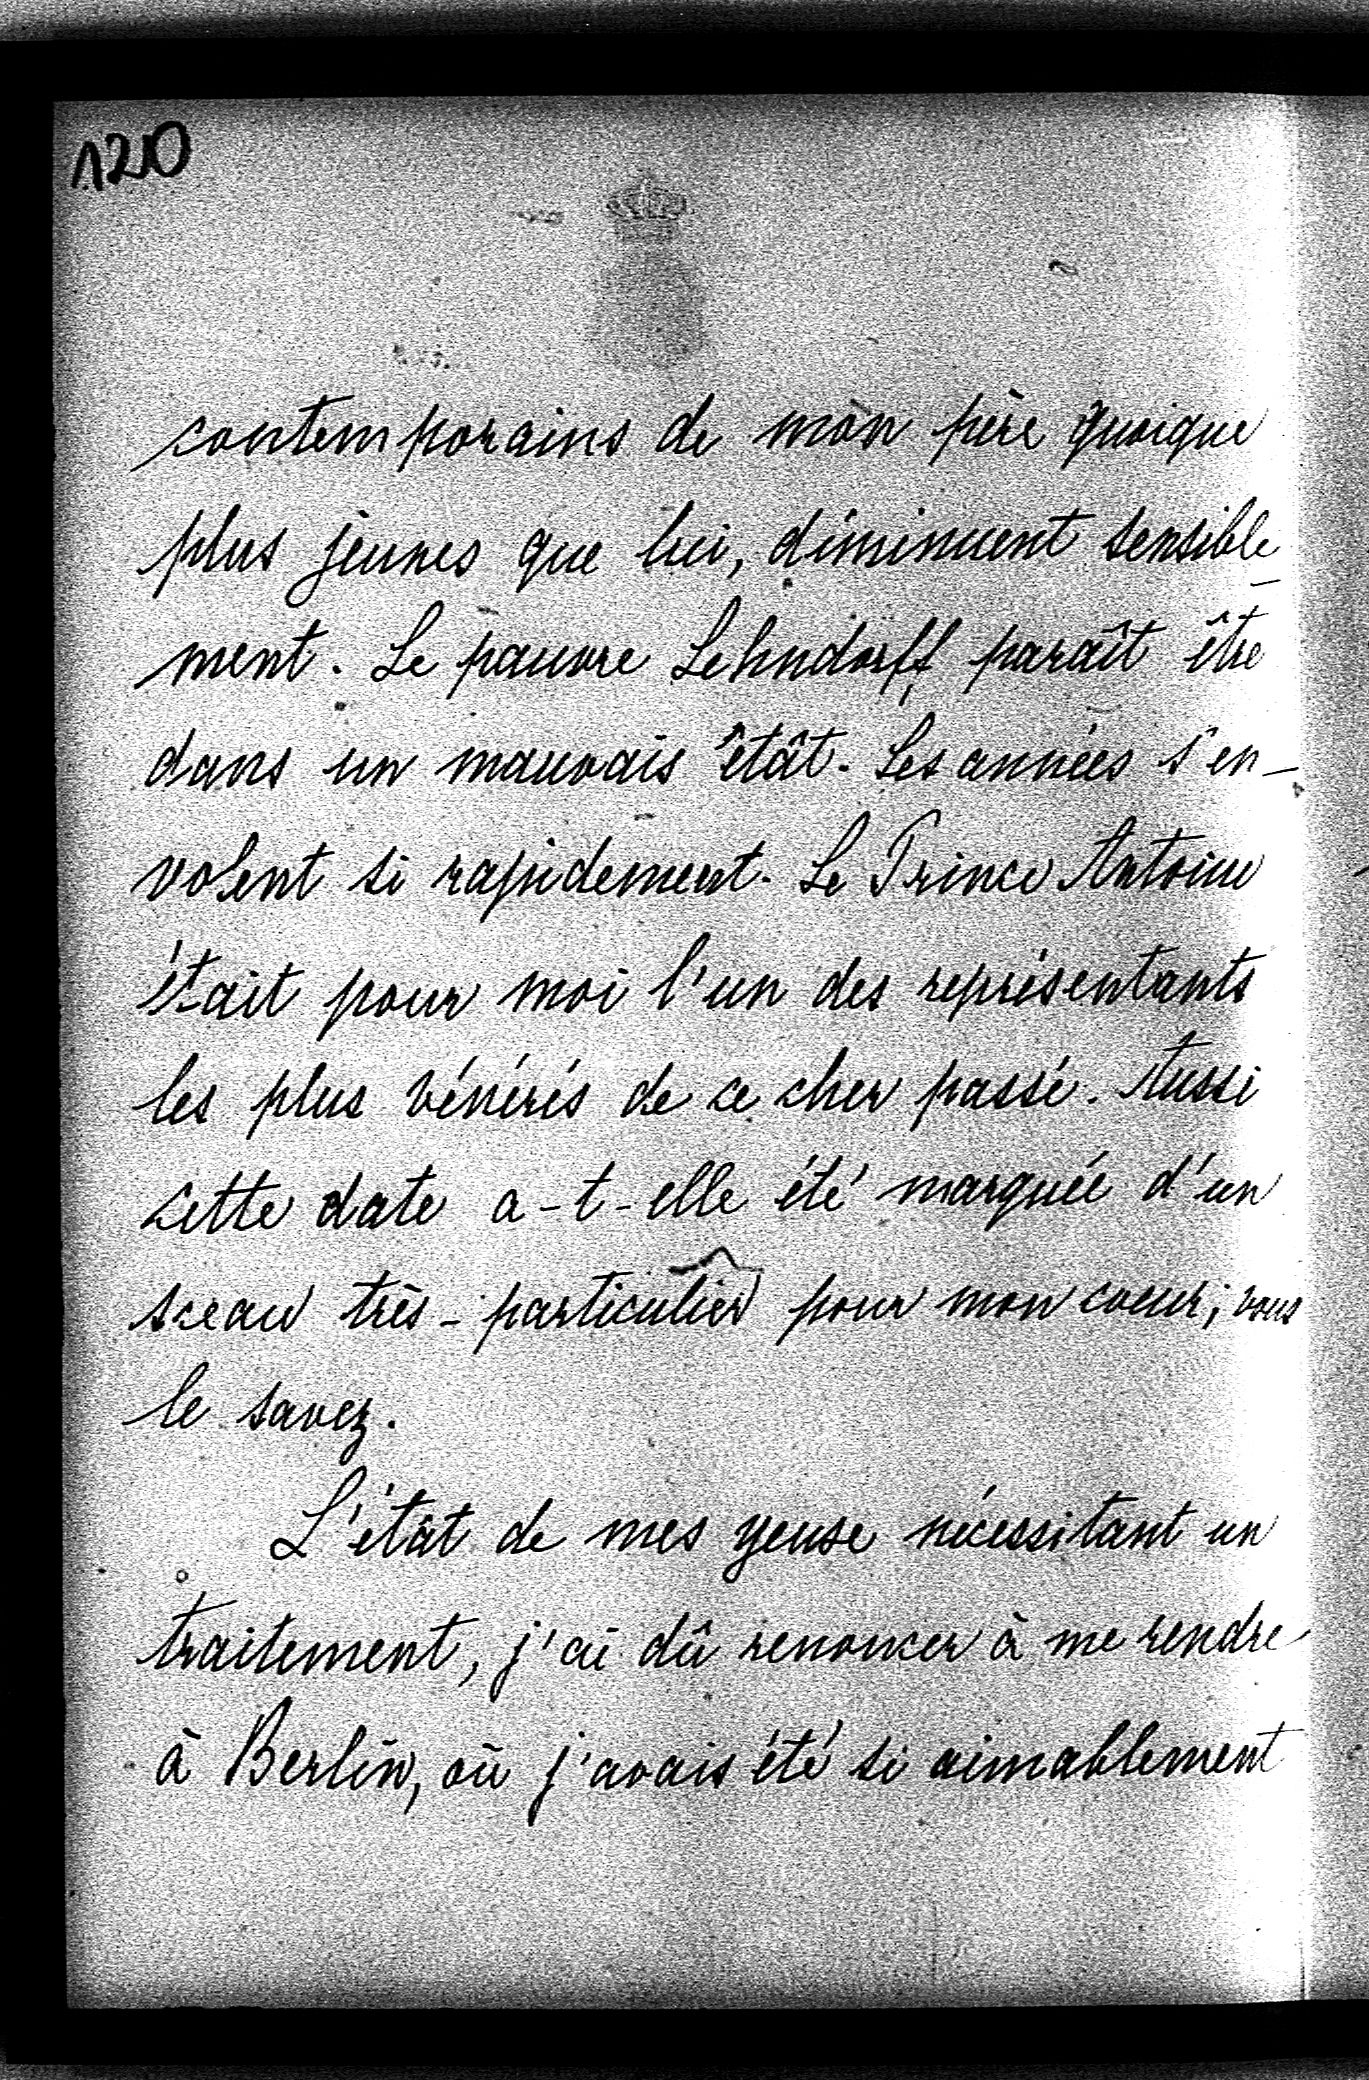 120
contemporains de mon père quoique
plus jeunes que lui, diminuent sensible-
ment. Le pauvre Lehndorff paraît être
dans un mauvais étât. Les années s'en-
volent si rapidement. Le Prince Antoine
était pour moi l'un des représentants
les plus vénérés de ce cher passé. Aussi
cette date a-t-elle été marquée d'un
sceau très-particulier pour mon coeur; vous
le savez.
L'étât de mes yeuse nécessitant un
traitement, j'ai dû renoncer à me rendre
à Berlin, où j'avais été si aimablement